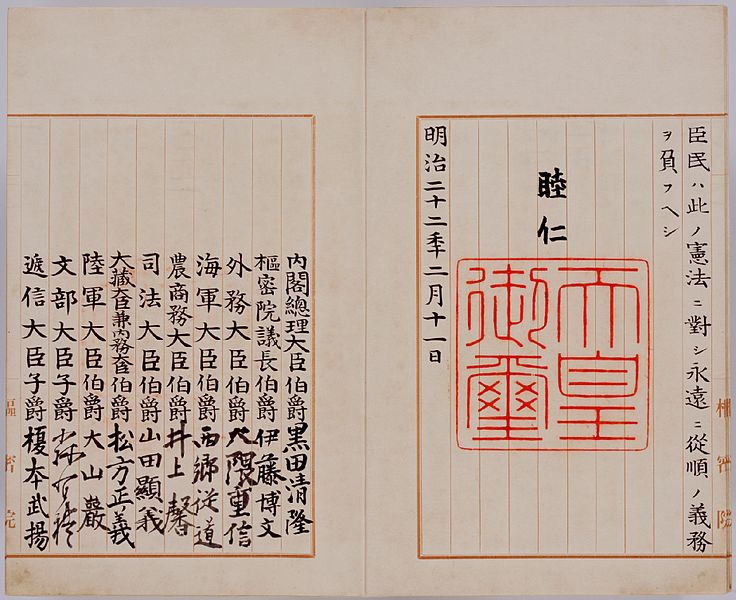 臣民ハ此ノ憲法ニ對シ永遠ニ從順ノ義務
ヲ負フヘシ
睦仁
天皇
御璽
明治二十二年二月十一日
內閣總理大臣伯爵黑田淸隆
樞密院議長伯爵伊藤博文
外務大臣伯爵大隈重信
海軍大臣伯爵西鄕從道
農商務大臣伯爵井上馨
司法大臣伯爵山田顯義
大藏大臣兼內務大臣伯爵松方正義
陸軍大臣伯爵大山巖
文部大臣子爵森有禮
遞信大臣子爵榎本武揚
樞密院
樞密院